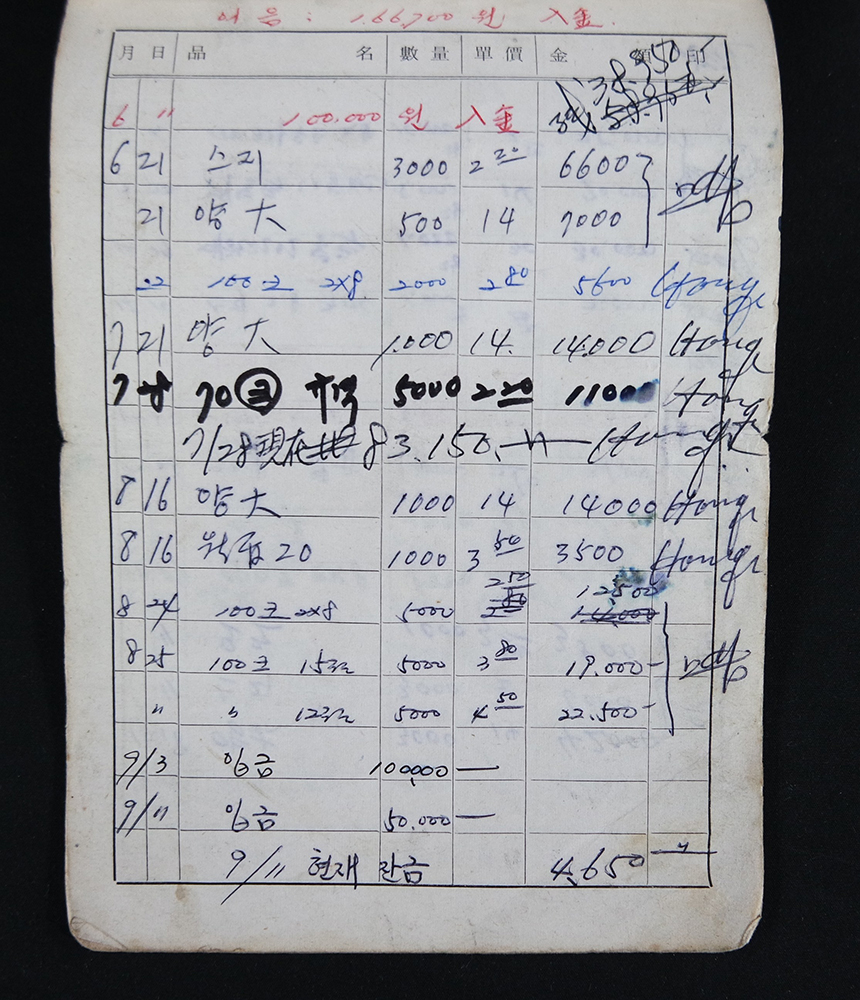 어음 : 1.66,700 원 入金.
月 日 品 名 數量 單價 金 額 印
38,950
6 〃 100.000 원 入金
6 21 스리 3000 2 20 6600
21 양大 500 14 7000
22 100코 2x8 2000 2 80 5600 Hong
7 21 양大 1.000 14. 14.000 Hong
7 70코 5000 2 20 11000 Hong
7/28 現在 83.150.—
8 16 양大 1000 14 14000 Hong
8 16 20 1000 3 50 3500 Hong
8 24 100코 2x8 5000 2 50 12,500
8 25 100코 15 5000 3 80 19.000-
〃 〃 12 5000 4 50 22.500-
9/3 입금 100,000 —
9/11 입금 50.000 —
9/11 현재 잔금 4,650